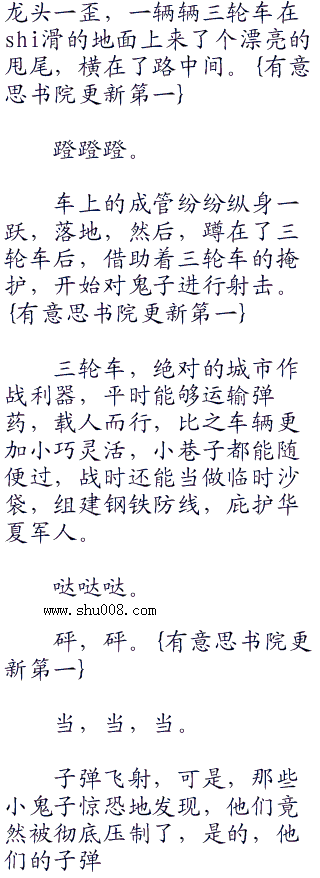 龙头一歪，一辆辆三轮车在
shi滑的地面上来了个漂亮的
甩尾，横在了路中间。{有意
思书院更新第一}
蹬蹬蹬。
车上的成管纷纷纵身一
跃，落地，然后，蹲在了三
轮车后，借助着三轮车的掩
护，开始对鬼子进行射击。
{有意思书院更新第一}
三轮车，绝对的城市作
战利器，平时能够运输弹
药，载人而行，比之车辆更
加小巧灵活，小巷子都能随
便过，战时还能当做临时沙
袋，组建钢铁防线，庇护华
夏军人。
哒哒哒。
www.shu008.com
砰，砰。{有意思书院更
新第一}
当，当，当。
子弹飞射，可是，那些
小鬼子惊恐地发现，他们竟
然被彻底压制了，是的，他
们的子弹